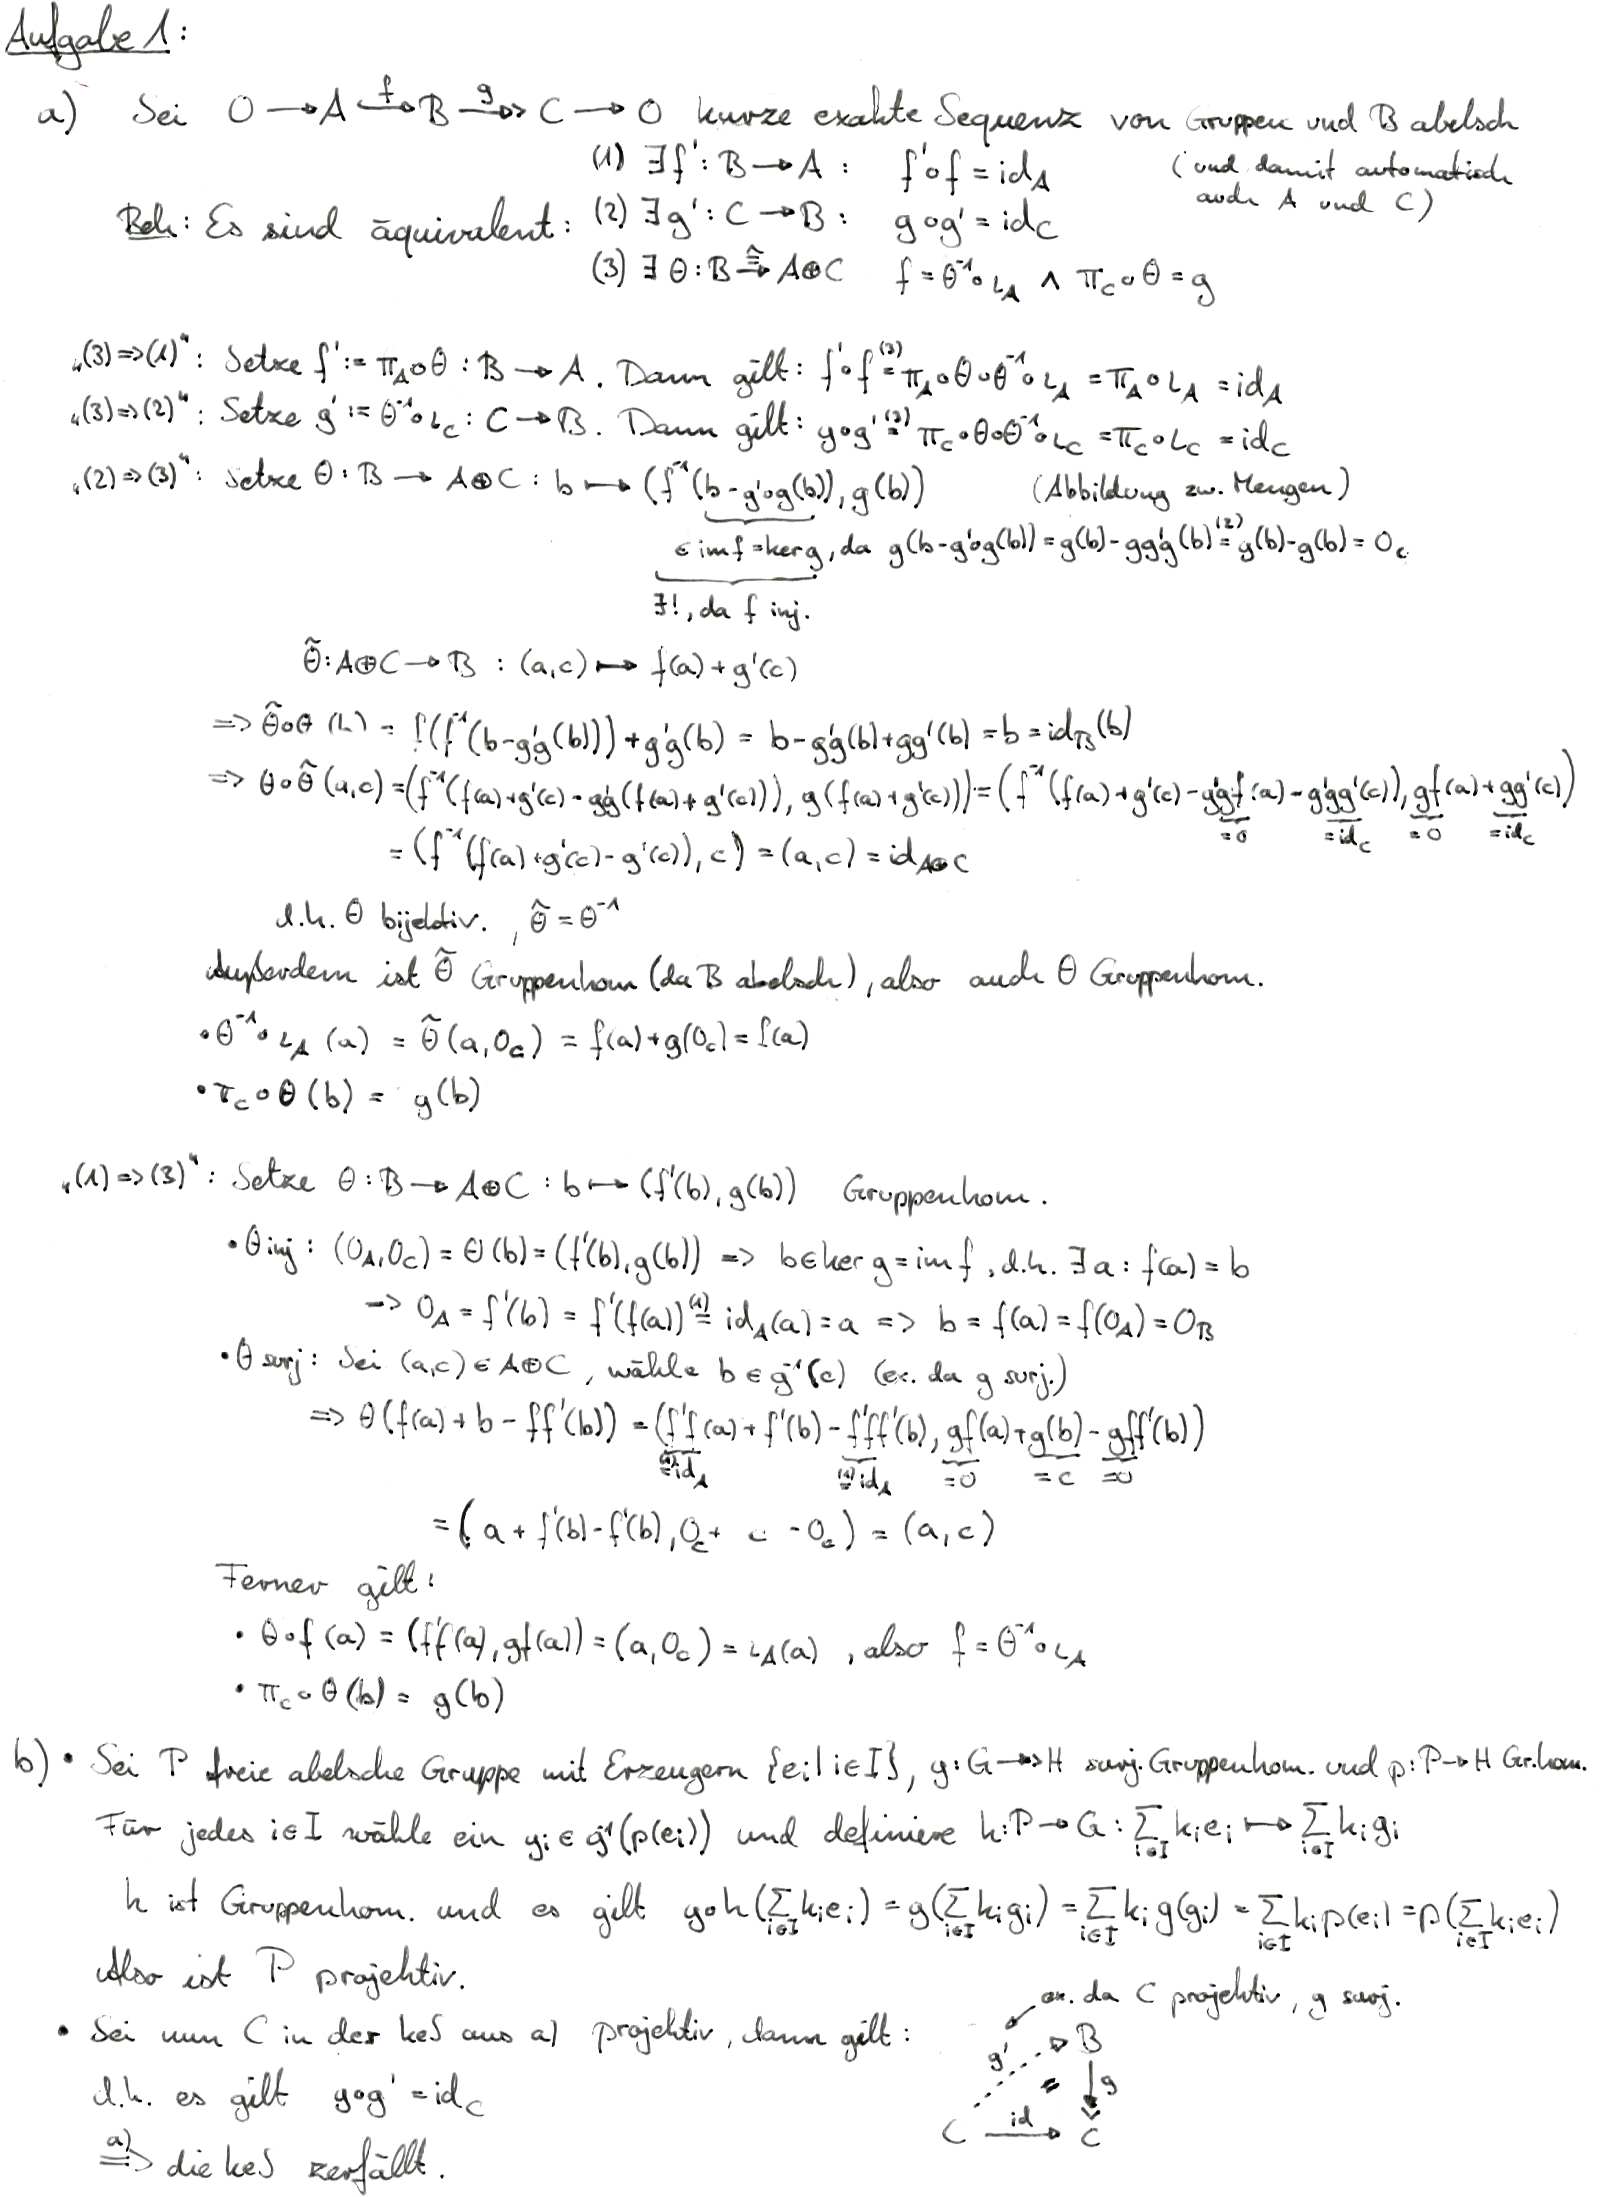 Aufgabe 1:
a) Sei 0 → A →f B ↠g C → 0 kurze exakte Sequenz von Gruppen und B abelsch
(und damit automatisch
auch A und C)
(1) ∃ f': B → A : f'∘f = id_A
Beh: Es sind äquivalent: (2) ∃ g': C → B : g∘g' = id_C
(3) ∃ Θ: B →≅ A⊕C f = Θ⁻¹∘ι_A ∧ π_C∘Θ = g
„(3)=>(1)“: Setze f' := π_A∘Θ : B → A. Dann gilt: f'∘f =(3) π_A∘Θ∘Θ⁻¹∘ι_A = π_A∘ι_A = id_A
„(3)=>(2)“: Setze g' := Θ⁻¹∘ι_C : C → B. Dann gilt: g∘g' =(3) π_C∘Θ∘Θ⁻¹∘ι_C = π_C∘ι_C = id_C
„(2)=>(3)“: Setze Θ: B → A⊕C : b ↦ (f⁻¹(b-g'∘g(b)), g(b)) (Abbildung zw. Mengen)
∈ im f = ker g, da g(b-g'∘g(b)) = g(b)-gg'g(b) =(2) g(b)-g(b) = 0_C
∃!, da f inj.
Θ̃: A⊕C → B : (a,c) ↦ f(a)+g'(c)
=> Θ̃∘Θ (b) = f(f⁻¹(b-g'g(b)))+g'g(b) = b-g'g(b)+gg'(b) = b = id_B(b)
=> Θ∘Θ̃ (a,c) = (f⁻¹(f(a)+g'(c)-g'g(f(a)+g'(c))), g(f(a)+g'(c))) = (f⁻¹(f(a)+g'(c)-g'gf(a)-g'gg'(c)), gf(a)+gg'(c))
=0 =id_C =0 =id_C
= (f⁻¹(f(a)+g'(c)-g'(c)), c) = (a,c) = id_A⊕C
d.h. Θ bijektiv. , Θ̃ = Θ⁻¹
Außerdem ist Θ̃ Gruppenhom (da B abelsch), also auch Θ Gruppenhom.
• Θ⁻¹∘ι_A (a) = Θ̃(a,0_C) = f(a)+g(0_C) = f(a)
• π_C∘Θ(b) = g(b)
„(1)=>(3)“: Setze Θ: B → A⊕C : b ↦ (f'(b), g(b)) Gruppenhom.
• Θ inj: (0_A,0_C) = Θ(b) = (f'(b), g(b)) => b ∈ ker g = im f, d.h. ∃ a : f(a) = b
=> 0_A = f'(b) = f'(f(a)) =(1) id_A(a) = a => b = f(a) = f(0_A) = 0_B
• Θ surj: Sei (a,c) ∈ A⊕C, wähle b ∈ g⁻¹(c) (ex. da g surj.)
=> Θ(f(a)+b-ff'(b)) = (f'f(a)+f'(b)-f'ff'(b), gf(a)+g(b)-gff'(b))
=(1) id_A =(1) id_A =0 =c =0
= (a+f'(b)-f'(b), 0_C + c - 0_C) = (a,c)
Ferner gilt:
• Θ∘f (a) = (f'f(a), gf(a)) = (a,0_C) = ι_A(a), also f = Θ⁻¹∘ι_A
• π_C∘Θ(b) = g(b)
b) • Sei P freie abelsche Gruppe mit Erzeugern {e_i | i∈I}, g: G ↠ H surj. Gruppenhom. und p: P → H Gr.hom.
Für jedes i∈I wähle ein g_i ∈ g⁻¹(p(e_i)) und definiere h: P → G : ∑_{i∈I} k_i e_i ↦ ∑_{i∈I} k_i g_i
h ist Gruppenhom. und es gilt g∘h(∑_{i∈I} k_i e_i) = g(∑_{i∈I} k_i g_i) = ∑_{i∈I} k_i g(g_i) = ∑_{i∈I} k_i p(e_i) = p(∑_{i∈I} k_i e_i)
Also ist P projektiv.
ex. da C projektiv, g surj.
• Sei nun C in der keS aus a) projektiv, dann gilt:
g' B
= g
C id C
d.h. es gilt g∘g' = id_C
a) => die keS zerfällt.